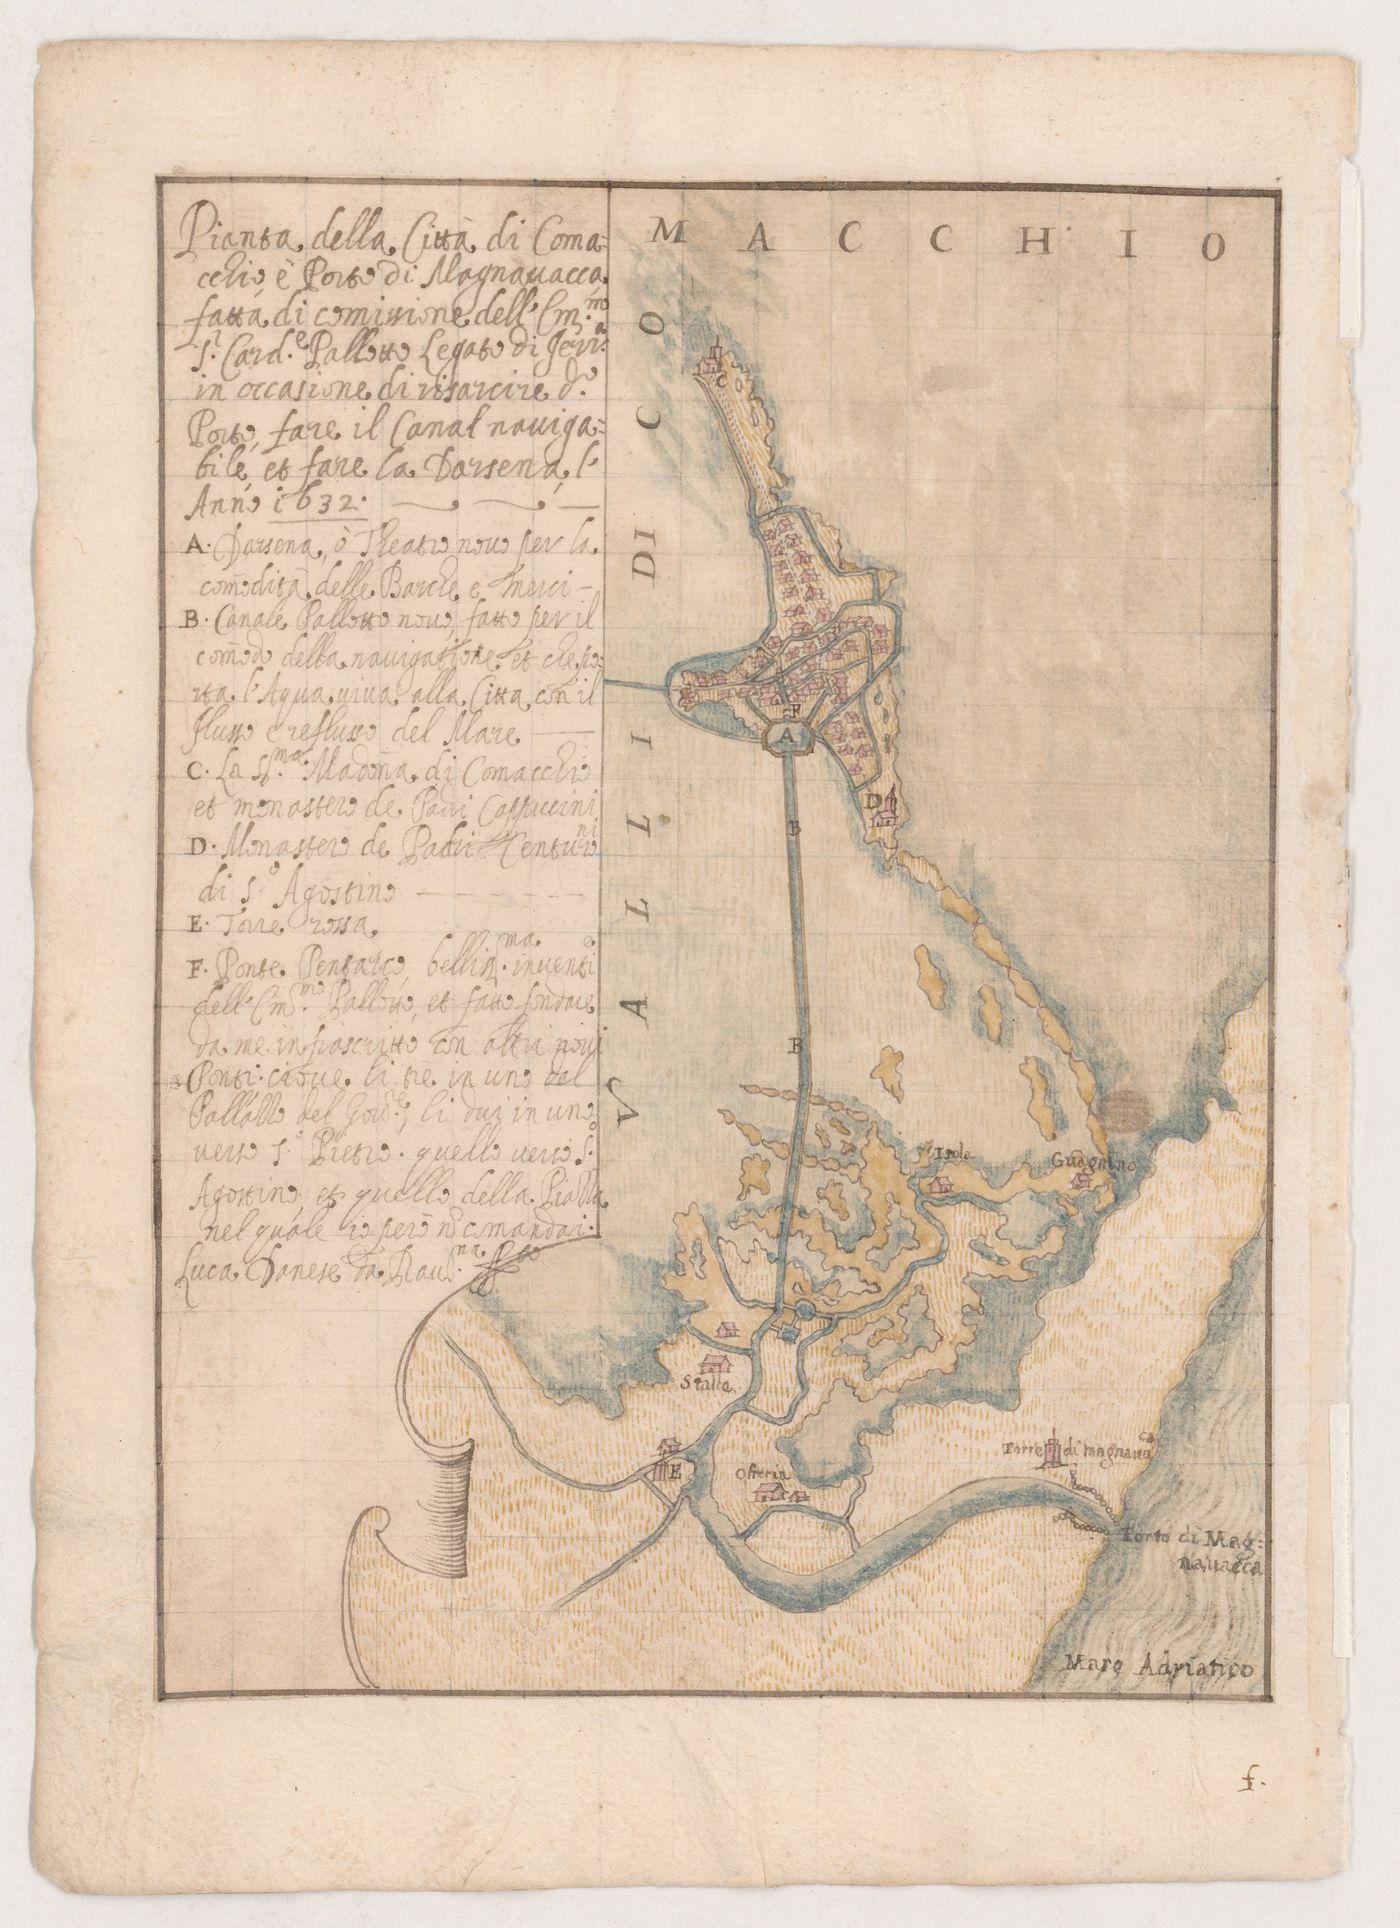 Pianta della Città di Coma=
cchio è Porto di Magnauacca
fatta di comissione dell' Em.mo
S.r Card.e Pallotto Legato di Ferr.a
in occasione di risarcire d.o
Porto, fare il Canal nauiga=
bile, et fare la Darsena, l'
Anno i632.
A. Darsena, ò Theatro nouo per la
comodità delle Barche e merci
B. Canale Pallotto nouo, fatto per il
comodo della nauigatione et che po=
rta l'Aqua uiua alla Citta con il
flusso e reflusso del Mare
C. La SS.ma Madona di Comacchio
et monastero de Padri Cappuccini
D. Monastero de Padri Centurini
di S.o Agostino
E. Torre rossa
F. Ponte Pentarco, belliss.ma inventi
dell' Em.mo Pallotto, et fatto fondare
da me infrascritto con altri noui
Ponti. cioue li tre in uno dal
Pallazzo del Gou.re, li dui in uno
uerso S. Pietro. quello uerso S.o
Agostino et quello della Piazza
nel quale io però nō comandai.
Luca Danese da Rau.na
M A C C H I O
VALLI DI CO
C
F
A
D
B
B
Isola
Guagnino
Stalla
E
Osteria
Torre di magnauacca
Porto di Mag=
nauacca
Mare Adriatico
f.